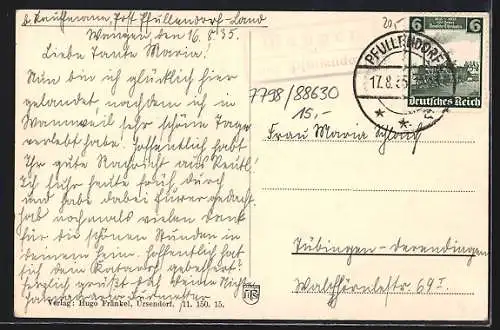 b. Kaufmann, Post Pfullendorf-Land
Wangen, den 16.8.35.
Liebe Tante Maria!
Nun bin ich glücklich hier
gelandet, nachdem ich in
Wannweil sehr schöne Tage
verlebt habe. Hoffentlich habt
Ihr gute Nachricht aus Reutl!
Ich fuhr heute früh durch
und habe dabei Eurer gedacht.
hab nochmals vielen Dank
für die schönen Stunden in
deinem Heim. Hoffentlich hat
sich dein Katarrh gebessert.
herzlich grüßt dich deine Nichte
Verlag: Hugo Fränkel, Ursendorf. 11. 150. 15.
20,-
7798/88630
15,-
PFULLENDORF
17.8.35
6 6
Deutsches Reich
Frau Maria
Tübingen-Derendingen
69 I.